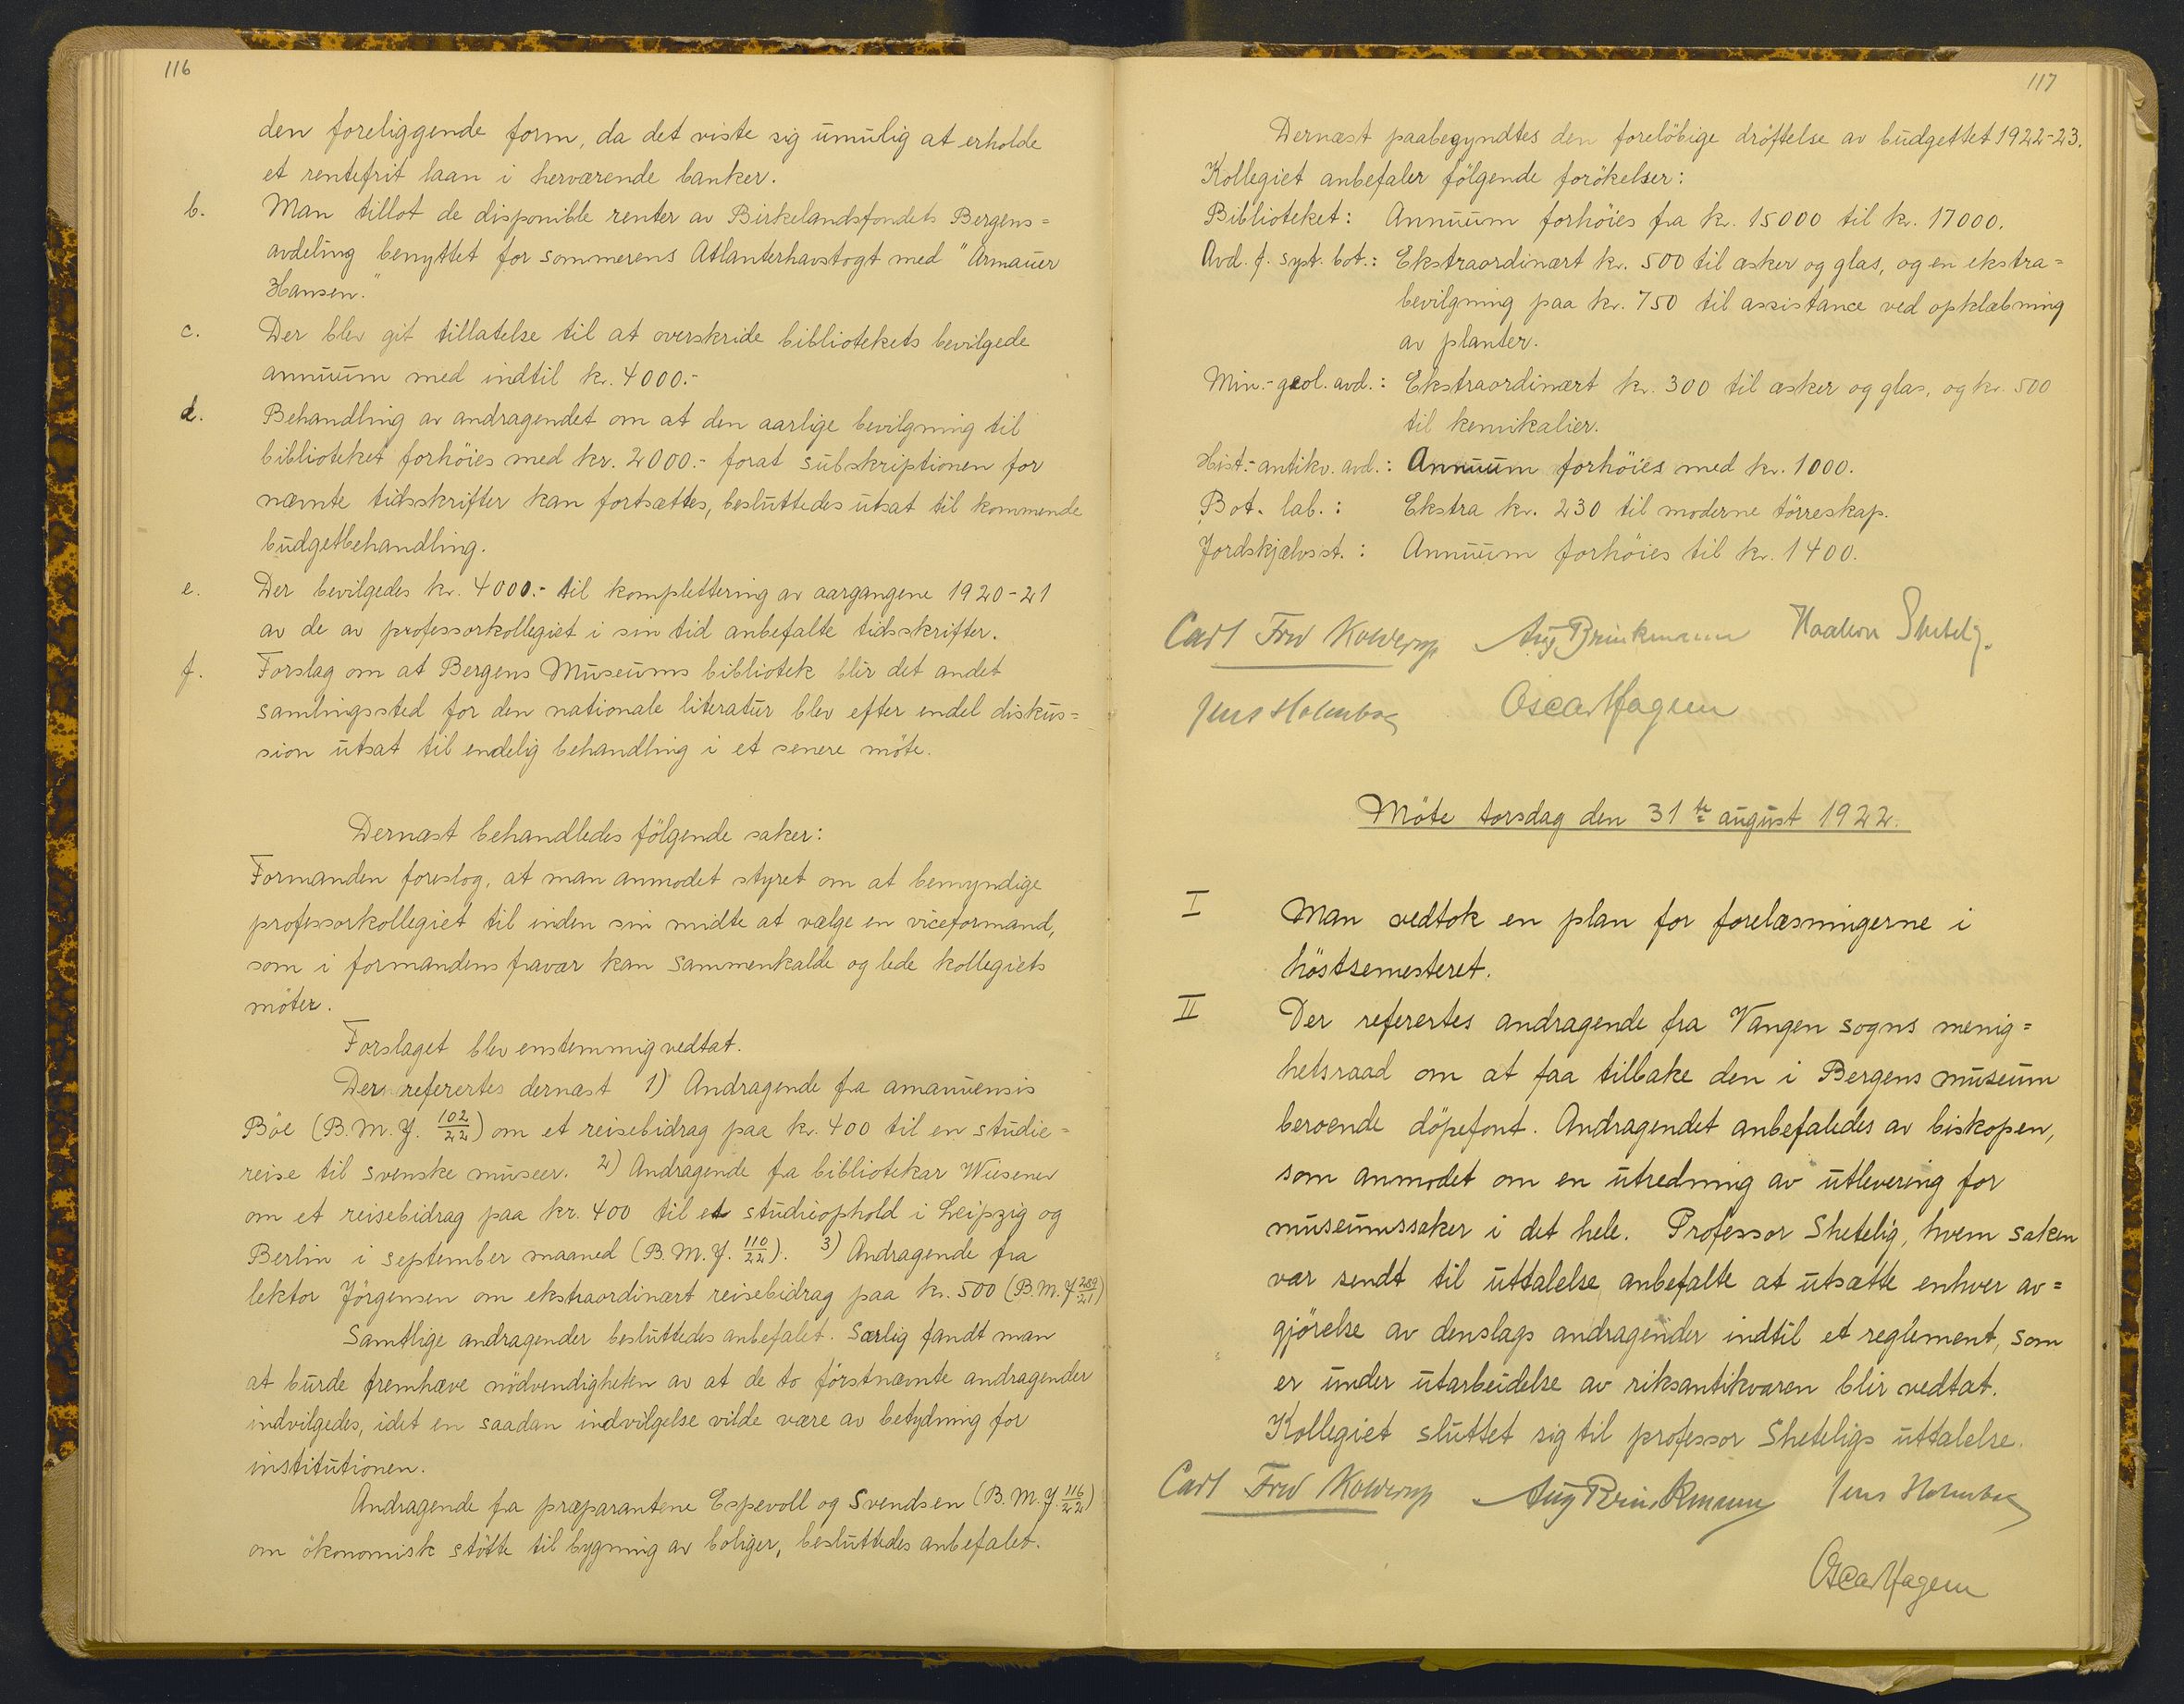 116
den foreliggende form, da det viste sig umulig at erholde
et rentefrit laan i herværende banker.
b. Man tillot de disponible renter av Birkelandsfondets Bergens=
avdeling benyttet for sommerens Atlanterhavstogt med "Armauer
Hansen."
c. Der blev git tillatelse til at overskride bibliotekets bevilgede
annuum med indtil kr. 4000.-
d. Behandling av andragendet om at den aarlige bevilgning til
biblioteket forhöies med kr. 2000.- forat subskriptionen for
nævnte tidsskrifter kan fortsættes, besluttedes utsat til kommende
budgetbehandling.
e. Der bevilgedes kr. 4000.- til komplettering av aargangene 1920-21
av de av professorkollegiet i sin tid anbefalte tidsskrifter.
f. Forslag om at Bergens Museums bibliotek blir det andet
samlingssted for den nationale literatur blev efter endel diskus=
sion utsat til endelig behandling i et senere möte.
Dernæst behandledes fölgende saker:
Formanden foreslog, at man anmodet styret om at bemyndige
professorkollegiet til inden sin midte at vælge en viceformand,
som i formandens fravær kan sammenkalde og lede kollegiets
möter.
Forslaget blev enstemmig vedtat.
Der refertes dernæst 1) Andragende fra amanuensis
Böe (B.M.J. 102/22) om et reisebidrag paa kr. 400 til en studie=
reise til svenske museer. 2) Andragende fra bibliotekar Wiesener
om et reisebidrag paa kr. 400 til et studieophold i Leipzig og
Berlin i september maaned (B.M.J. 110/22). 3) Andragende fra
lektor Jörgensen om ekstraordinært reisebidrag paa kr. 500 (B.M.J. 289/21)
Samtlige andragender besluttedes anbefalet. Særlig fandt man
at burde fremhæve nödvendigheten av at de to förstnævnte andragender
indvilgedes, idet en saadan indvilgelse vilde være av betydning for
institutionen.
Andragende fra præparantene Espevoll og Svendsen (B.M.J. 116/22)
om ökonomisk stötte til bygning av boliger, besluttedes anbefalet.
117
Dernæst paabegyndtes den forelöbige dröftelse av budgettet 1922-23.
Kollegiet anbefaler fölgende forökelser:
Biblioteket: Annuum forhöies fra kr. 15000 til kr. 17000.
Avd. f. syst. bot.: Ekstraordinært kr. 500 til æsker og glas, og en ekstra=
bevilgning paa kr. 750 til assistance ved opklæbning
av planter.
Min.-geol. avd.: Ekstraordinært kr. 300 til æsker og glas, og kr. 500
til kemikalier.
Hist.-antikv. avd.: Annuum forhöies med kr. 1000.
Bot. lab.: Ekstra kr. 230 til moderne törreskap.
Jordskjælvsst.: Annuum forhöies til kr. 1400.
Carl Fred Kolderup Aug Brinkmann Haakon Shetelig.
Jens Holmboe Oscar Hagem
Möte torsdag den 31te august 1922.
I Man vedtok en plan for forelæsningerne i
höstsemesteret.
II Der refertes andragende fra Vangen sogns menig=
hetsraad om at faa tilbake den i Bergens museum
beroende döpefont. Andragendet anbefaledes av biskopen,
som anmodet om en utredning av utlevering for
museumssaker i det hele. Professor Shetelig, hvem saken
var sendt til uttalelse, anbefalte at utsætte enhver av=
gjörelse av denslags andragender indtil et reglement, som
er under utarbeidelse av riksantikvaren blir vedtat.
Kollegiet sluttet sig til professor Sheteligs uttalelse.
Carl Fred Kolderup Aug Brinkmann Jens Holmboe
Oscar Hagem